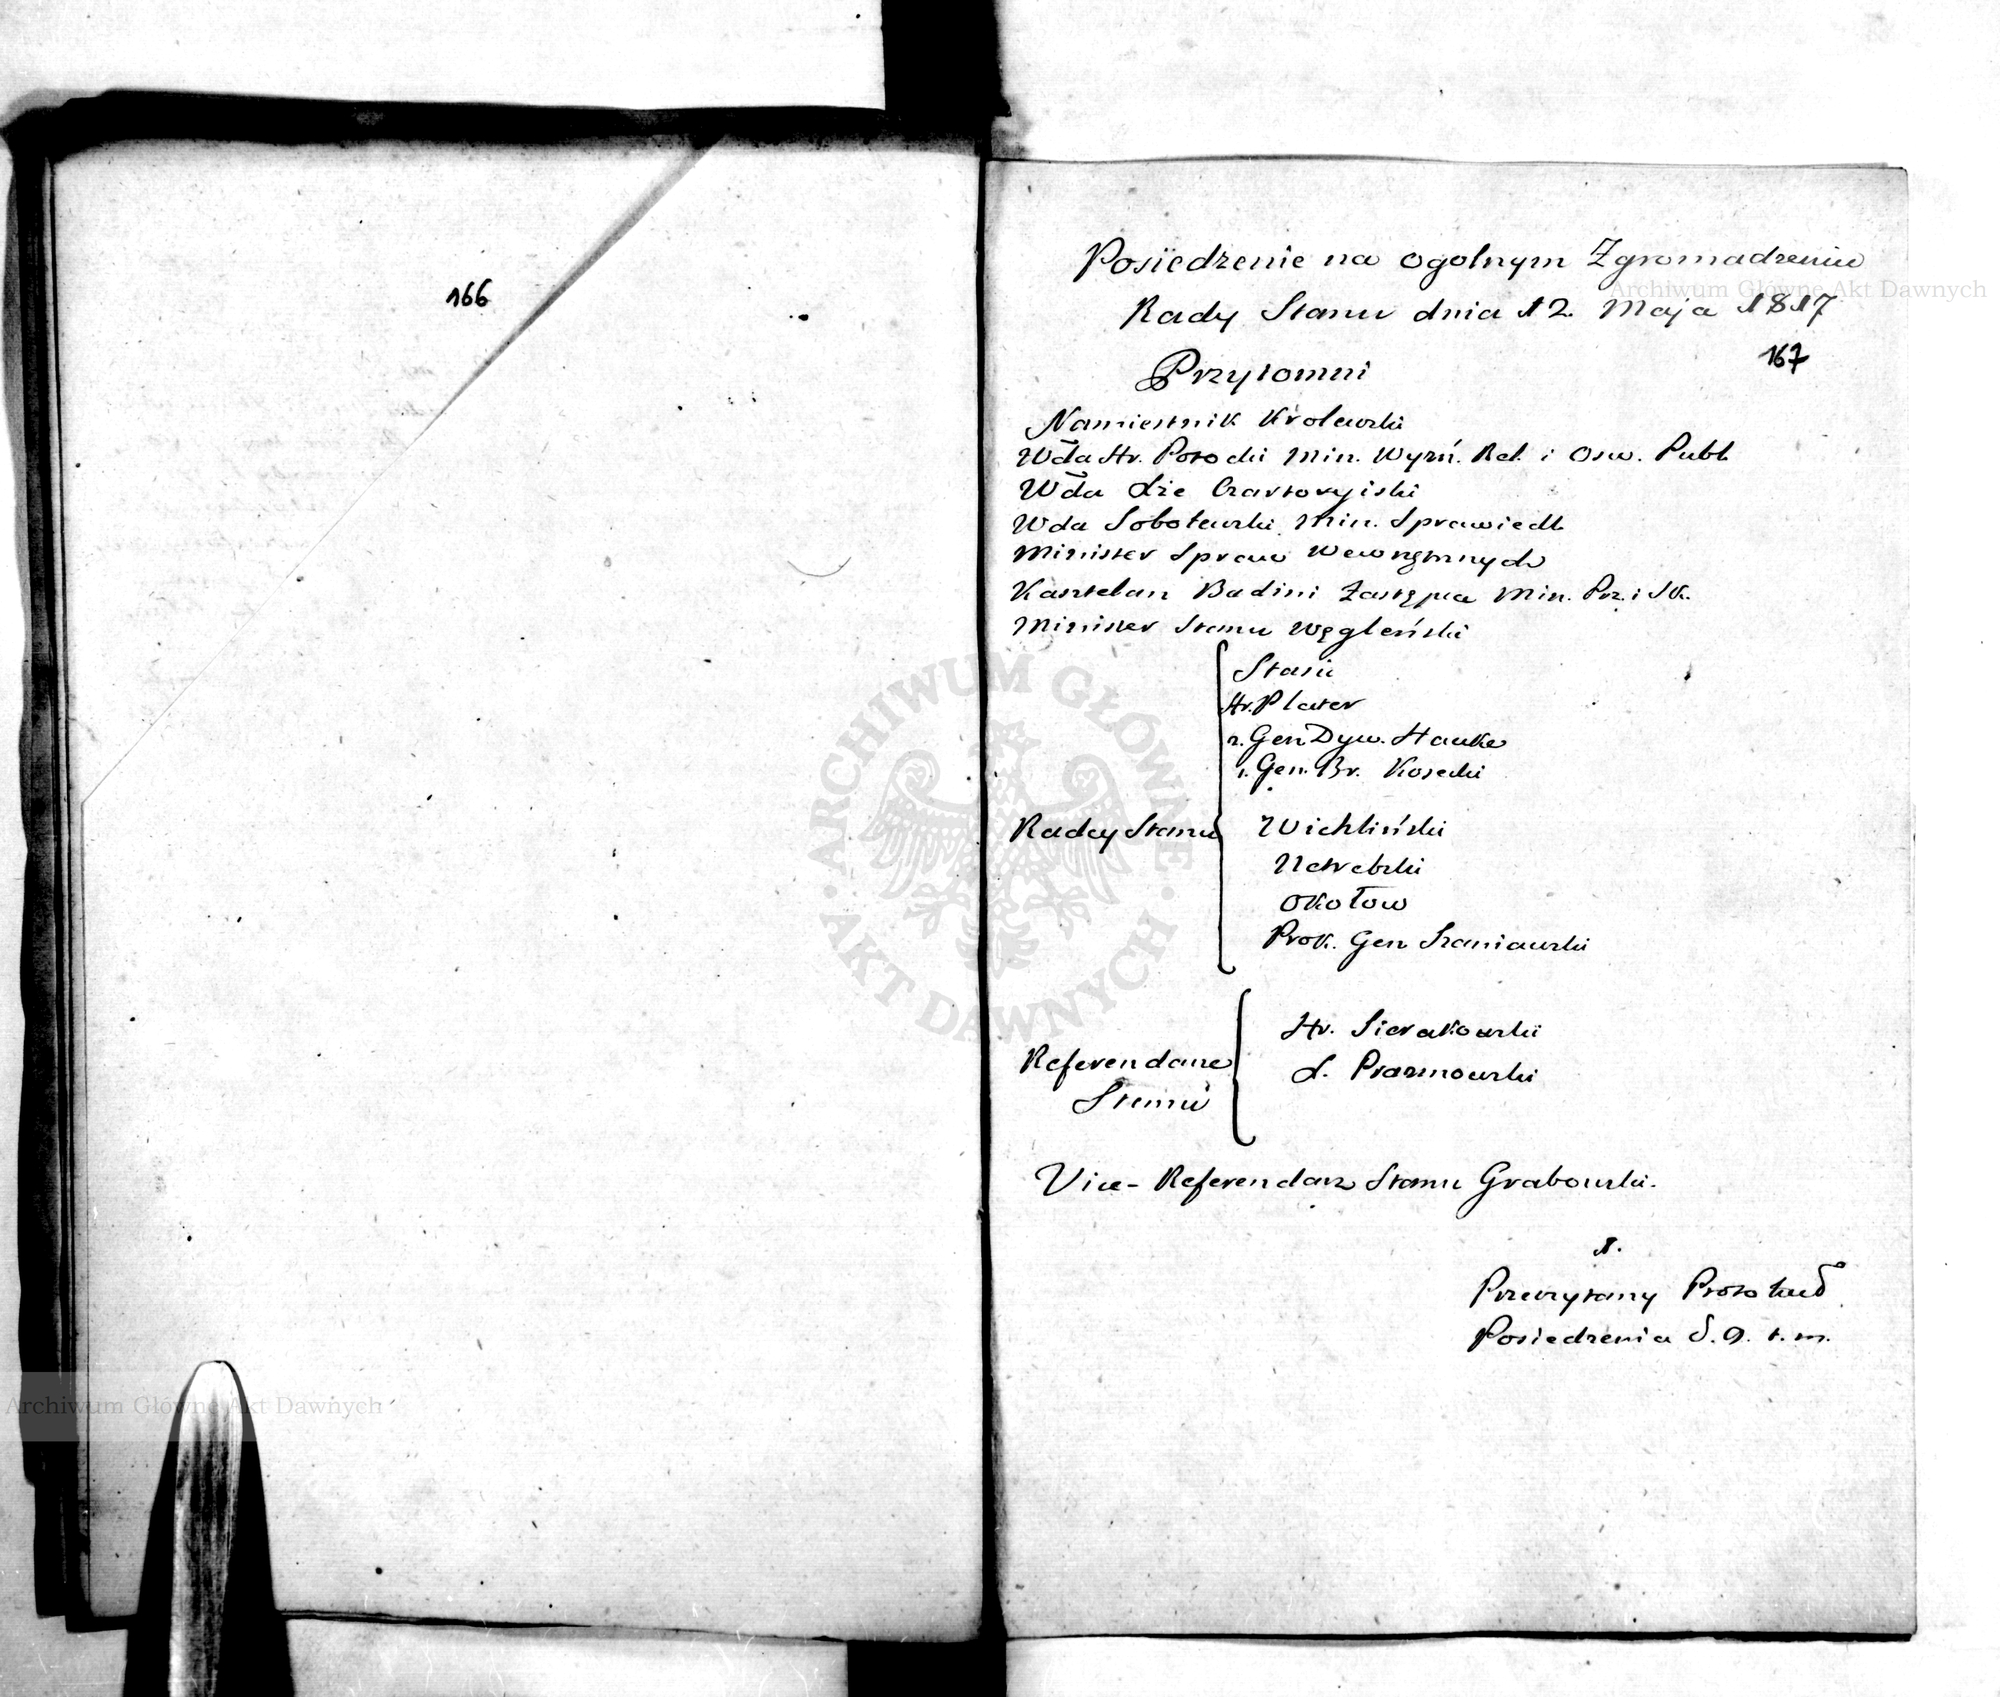 166
Posiedzenie na ogolnym Zgromadzeniu
Rady Stanu dnia 12. Maja 1817
167
Przytomni
Namiestnik Krolewski
Wda Hr. Potocki Min. Wyzń. Rel. i Osw. Publ.
Wda Xże Czartoryiski
Wda Sobolewski Min. Sprawiedl.
Minister Spraw Wewnętrznych
Kasztelan Badini Zastępca Min. Prz. i Sk.
Minister Stanu Węgleński
Radcy Stanu
Stasic
Hr. Plater
z. Gen Dyw. Hauke
z. Gen. Br. Kosecki
Wichliński
Netrebski
Okołow
Prok. Gen Szaniawski
Referendarze
Stanu
Hr. Sierakowski
X. Prazmowski
Vice-Referendarz Stanu Grabowski.
1.
Przeczytany Protokuł
Posiedzenia d. 9. t. m.
Archiwum Główne Akt Dawnych
ARCHIWUM GŁÓWNE AKT DAWNYCH
Archiwum Główne Akt Dawnych